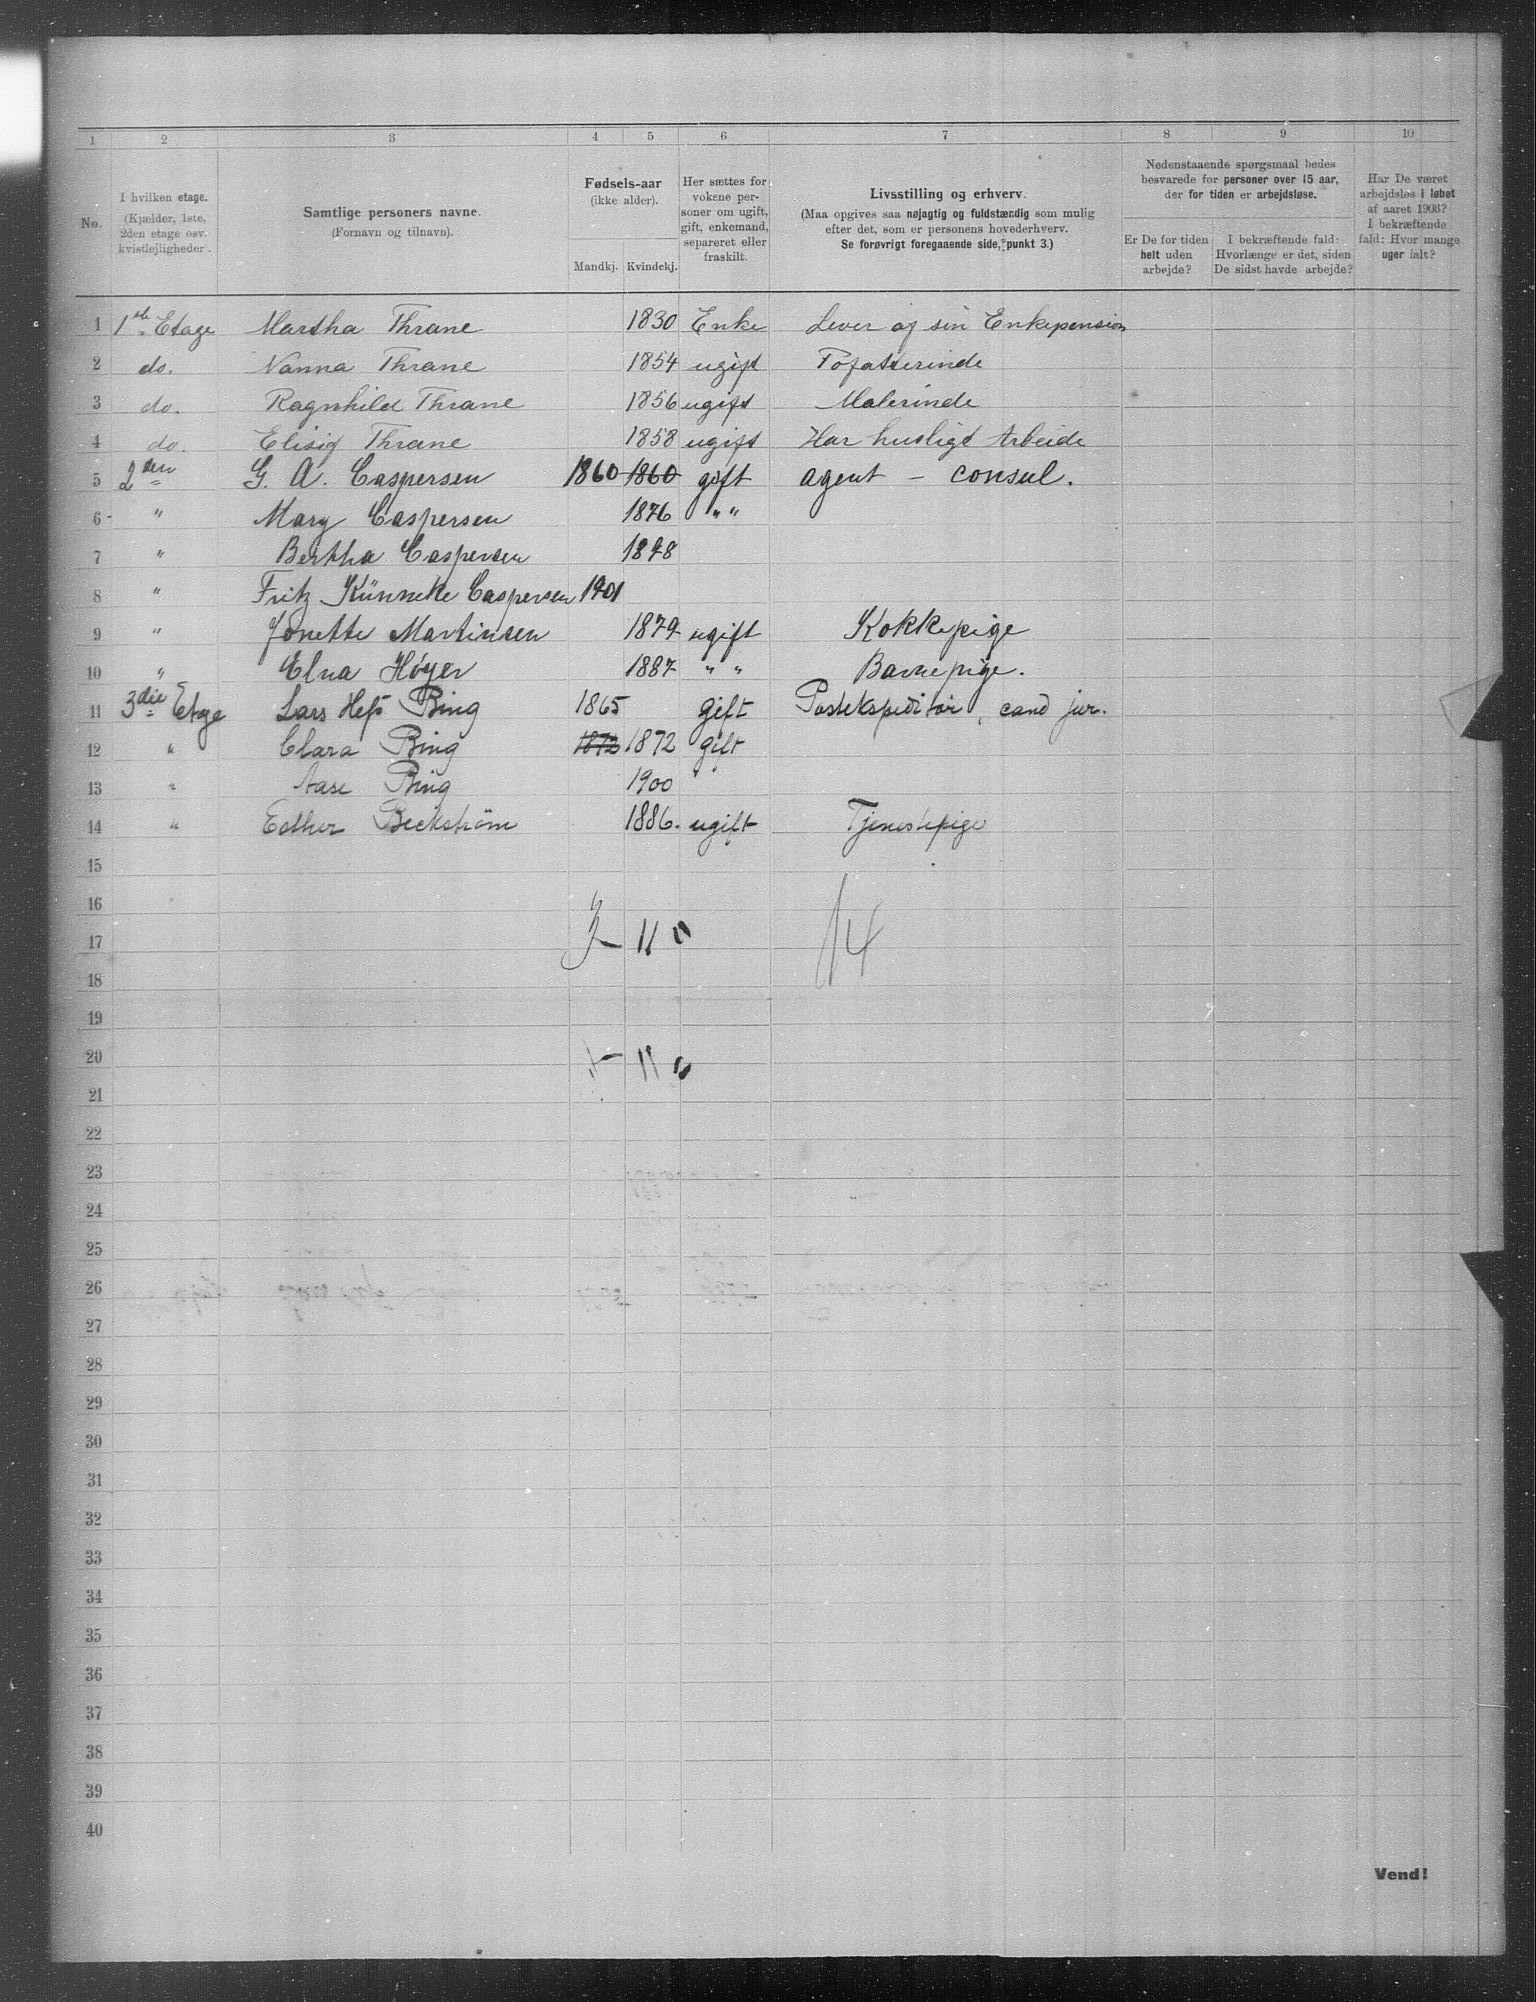 1 2 3 4 5 6 7 8 9 10
No.
I hvilken etage.
(Kjælder, 1ste,
2den etage osv.
kvistlejligheder).
Samtlige personers navne.
(Fornavn og tilnavn).
Fødsels-aar
(ikke alder).
Mandkj. Kvindekj.
Her sættes for
voksne per-
soner om ugift,
gift, enkemand,
separeret eller
fraskilt.
Livsstilling og erhverv.
(Maa opgives saa nøjagtig og fuldstændig som mulig
efter det, som er personens hovederhverv.
Se forøvrigt foregaaende side, punkt 3.)
Nedenstaaende spørgsmaal bedes
besvarede for personer over 15 aar,
der for tiden er arbejdsløse.
Er De for tiden
helt uden
arbejde?
I bekræftende fald:
Hvorlænge er det, siden
De sidst havde arbejde?
Har De været
arbejdsløs i løbet
af aaret 1903?
I bekræftende
fald: Hvor mange
uger ialt?
1 1ste Etage Martha Thrane 1830 Enke Lever af sin Enkepension
2 do. Nanna Thrane 1854 ugift Fofatterinde
3 do. Ragnhild Thrane 1856 ugift Malerinde
4 do. Elisif Thrane 1858 ugift Har husligt Arbeide
5 2den G. A. Caspersen 1860 1860 gift agent - consul.
6 " Mary Caspersen 1876 " "
7 " Bertha Caspersen 1898
8 " Fritz Künneke Caspersen 1901
9 " Jonette Martinsen 1879 ugift Kokkepige
10 " Elna Høyer 1887 " " Barnepige.
11 3die Etage Lars Hess Bing 1865 gift Postekspeditør, cand jur.
12 " Clara Bing 1872 1872 gift
13 " Aase Bing 1900
14 " Esther Beckstrøm 1886. ugift Tjenestepige
15
16
17 3 11 14
18
19
20 11
21
22
23
24
25
26
27
28
29
30
31
32
33
34
35
36
37
38
39
40
Vend!